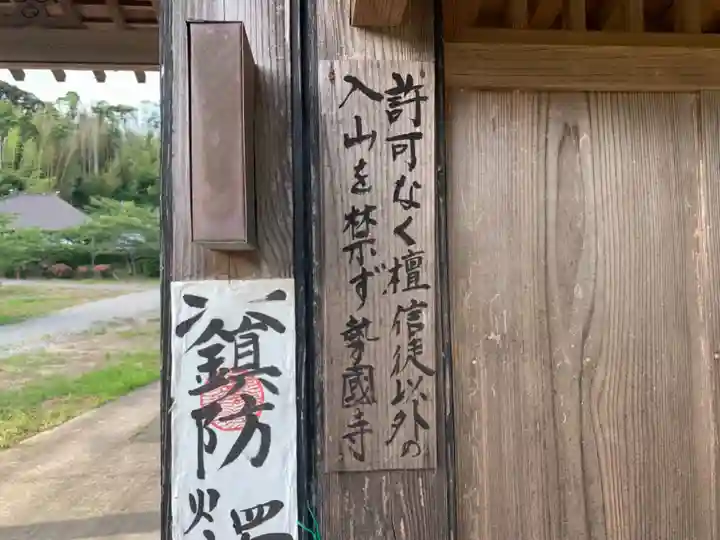 許可なく檀信徒以外の
入山を禁ず 勢國寺
鎮防火燭